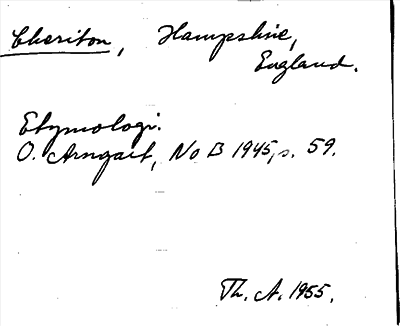 Cheriton, Hampshire,
England.
Etymologi.
O. Arngart, No B 1945, s. 59.
Th. A. 1955.